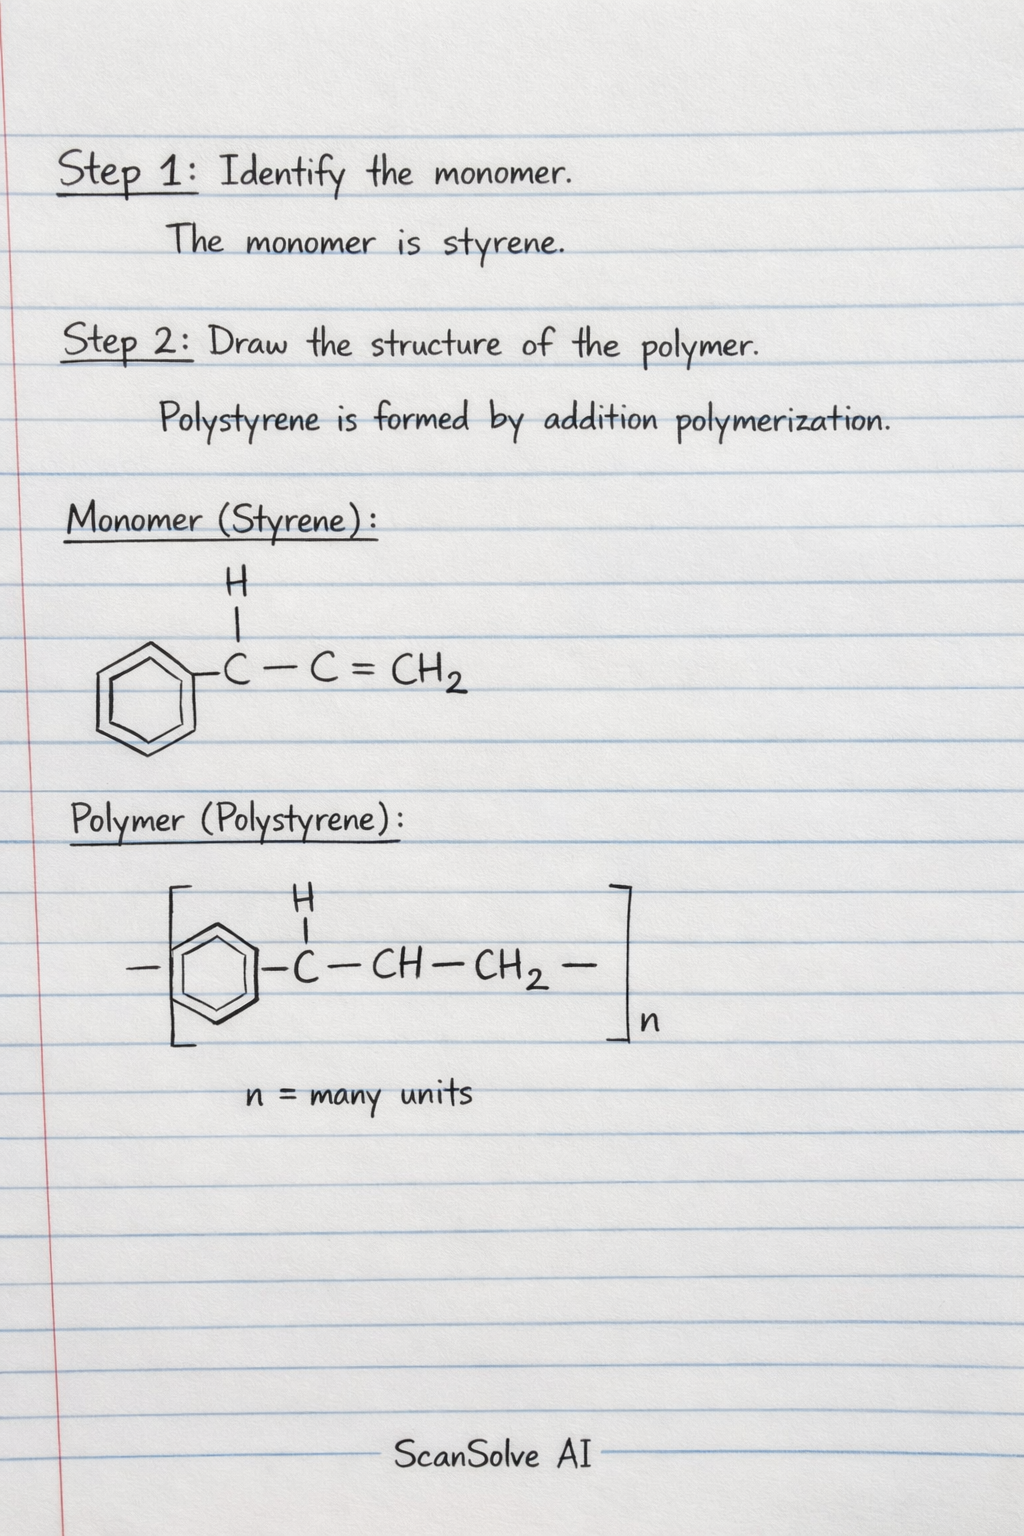 Step 1: Identify the monomer.
The monomer is styrene.
Step 2: Draw the structure of the polymer.
Polystyrene is formed by addition polymerization.
Monomer (Styrene):
H
C — C = CH₂
Polymer (Polystyrene):
H
C — CH — CH₂ —
n
n = many units
ScanSolve AI